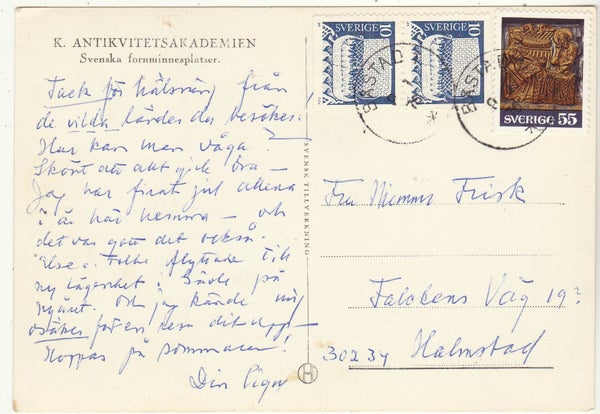 K. ANTIKVITETSAKADEMIEN
Svenska fornminnesplatser.
Tack för hälsning från
de vilda länder du besökes!
Hur kan man våga?
Skönt att allt gick bra –
Jag har firat jul allena
i år här hemma – och
det var gott det också.
Else o. Folke flyttade till
ny lägenhet i Gävle på
nyåret. Och jag kände mig
osäker för en resa dit upp.
Hoppas på sommaren!
Din
SVENSK TILLVERKNING
SVERIGE 10
SVERIGE 10
SVERIGE 55
BÅSTAD
BÅSTAD
Fru Nimmi Frisk
Falckens Väg 19?
30234 Halmstad